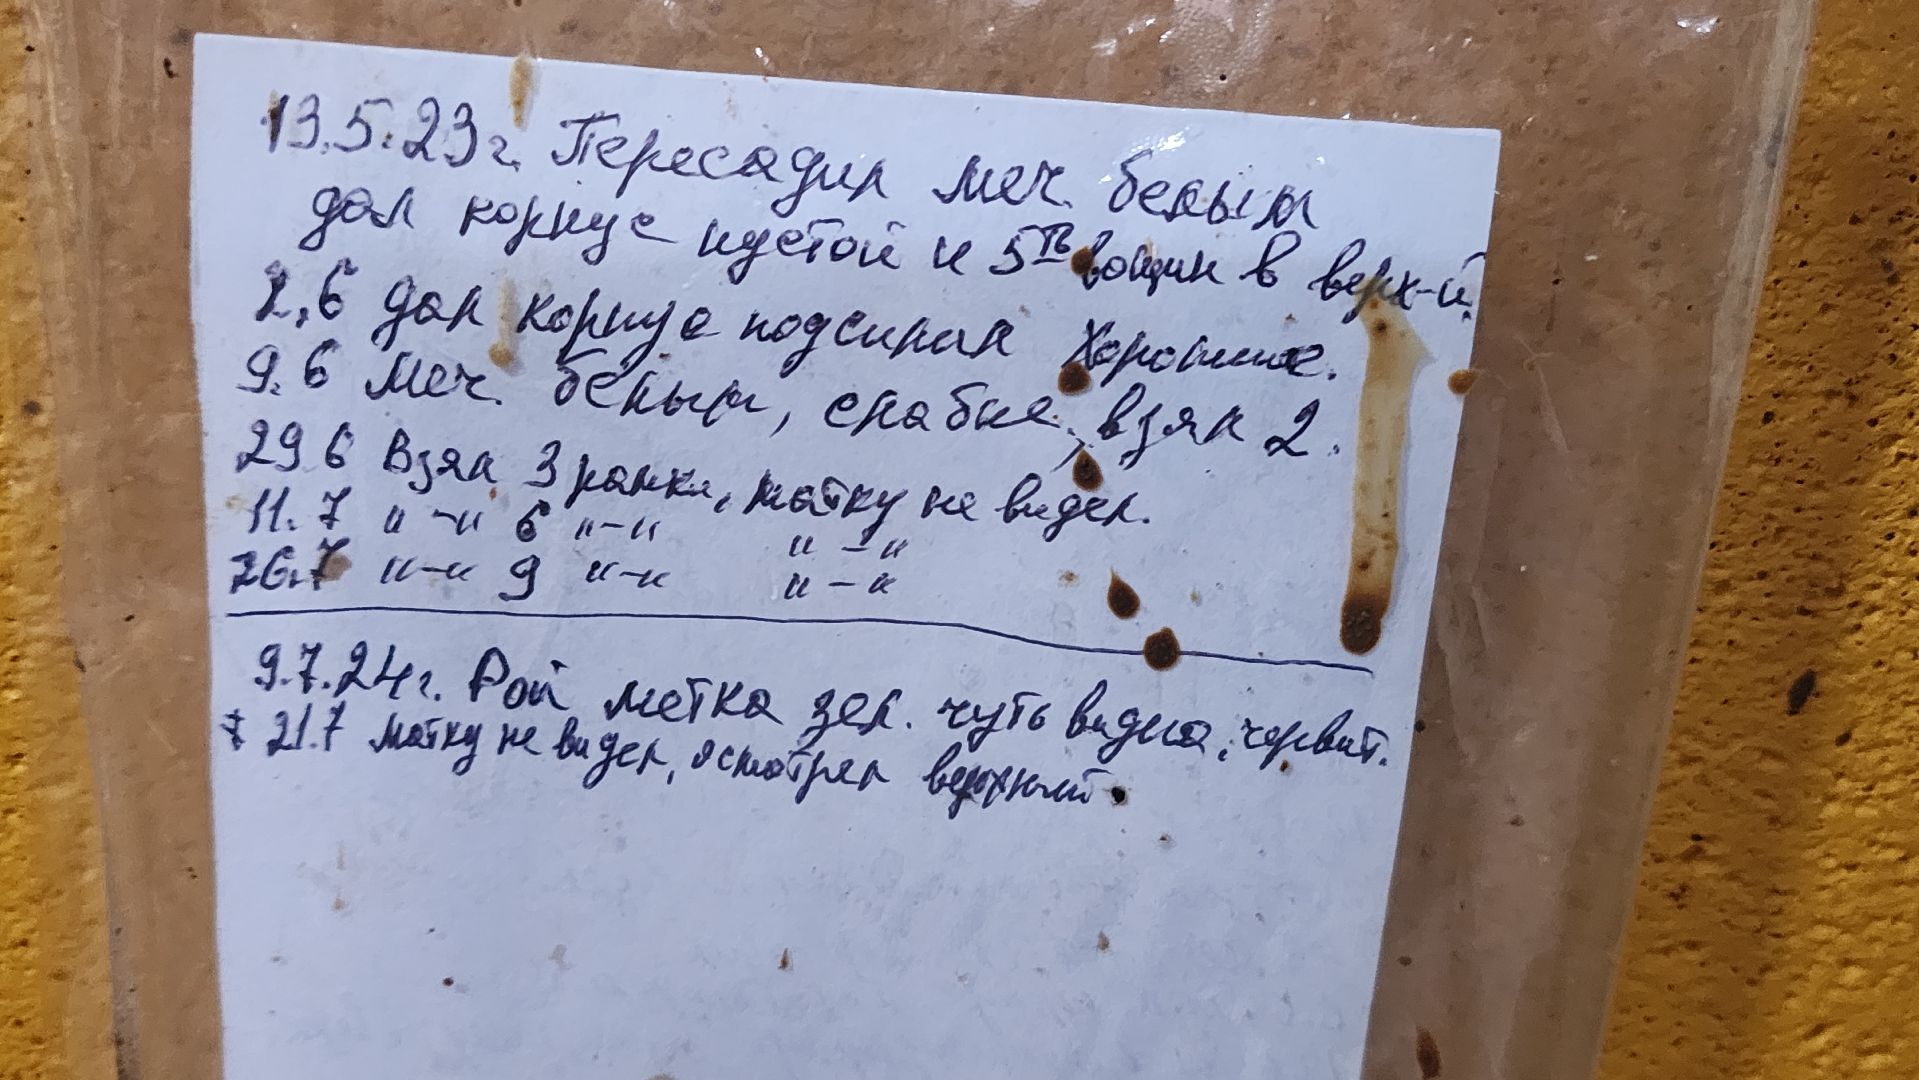 13.5.23г. Пересадил меч. белым
дал корпус пустой и 5ть вощин в верх-й.
2,6 дал корпус подсилил Хорошие.
9.6 меч. белым, слабые, взял 2.
29 6 Взял 3 рамки, матку не видел.
11.7 "-" 6 "-" "-"
26.7 "-" 9 "-" "-"
9.7.24г. Рой метка зел. чуть видна, червит.
21.7 матку не видел, осмотрел верхний.